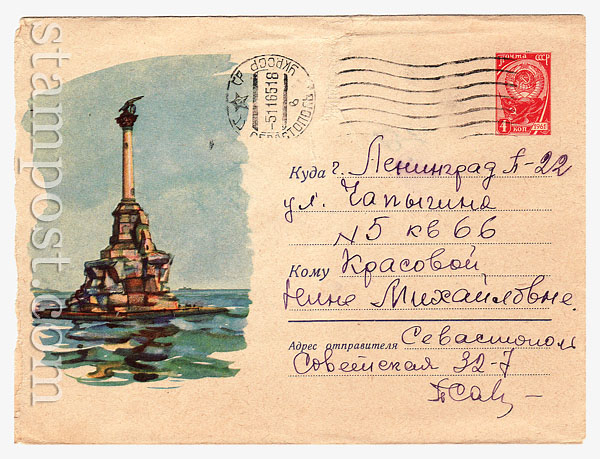 stampost.com
УКРССР
СЕВАСТОПОЛЬ
-5116518
ПОЧТА СССР
4 КОП 1961
Куда г. Ленинград П-22
ул. Чапыгина
N5 кв 66
Кому Красовой
Нине Михайловне.
Адрес отправителя Севастополь
Советская 32-7